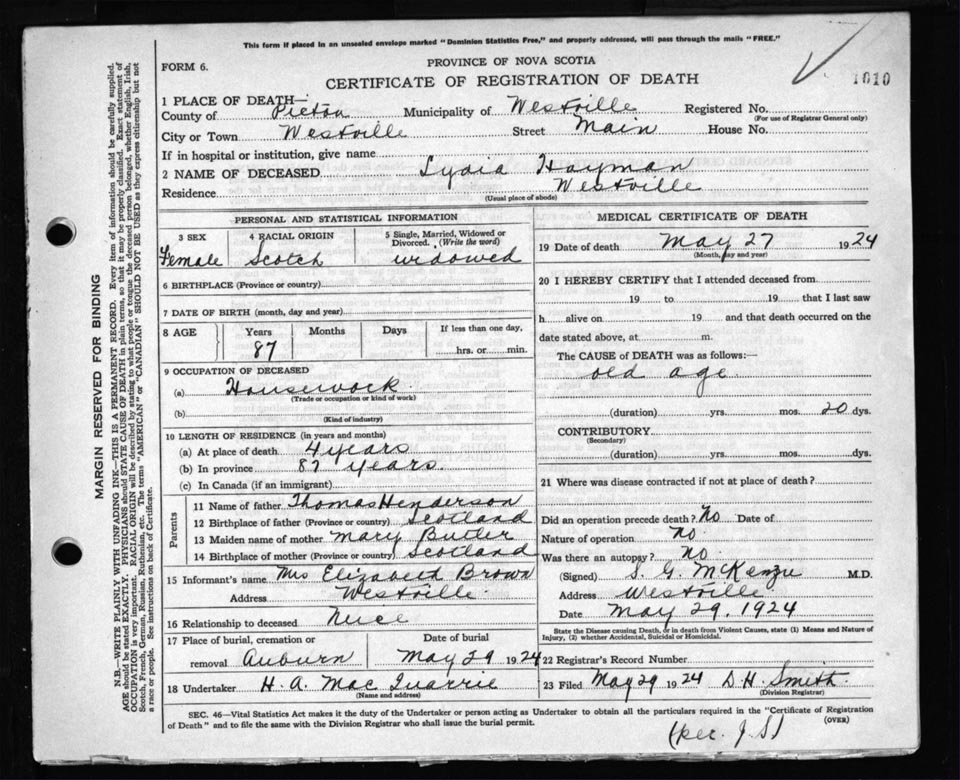 This form if placed in an unsealed envelope marked "Dominion Statistics Free," and properly addressed, will pass through the mails "FREE."
FORM 6.
PROVINCE OF NOVA SCOTIA
CERTIFICATE OF REGISTRATION OF DEATH
1010
1 PLACE OF DEATH—
County of Pictou Municipality of Westville Registered No.
(For use of Registrar General only)
City or Town Westville Street Main House No.
If in hospital or institution, give name
2 NAME OF DECEASED Lydia Hayman
Residence Westville
(Usual place of abode)
PERSONAL AND STATISTICAL INFORMATION
3 SEX 4 RACIAL ORIGIN 5 Single, Married, Widowed or Divorced. (Write the word)
Female Scotch widowed
6 BIRTHPLACE (Province or country)
7 DATE OF BIRTH (month, day and year)
8 AGE Years Months Days If less than one day,
87 hrs. or min.
9 OCCUPATION OF DECEASED
(a) Housework
(Trade or occupation or kind of work)
(b)
(Kind of industry)
10 LENGTH OF RESIDENCE (in years and months)
(a) At place of death 4 years
(b) In province 87 years.
(c) In Canada (if an immigrant)
Parents
11 Name of father Thomas Henderson
12 Birthplace of father (Province or country) Scotland
13 Maiden name of mother Mary Butler
14 Birthplace of mother (Province or country) Scotland
15 Informant's name Mrs Elizabeth Brown
Address Westville
16 Relationship to deceased Neice
17 Place of burial, cremation or Date of burial
removal Auburn May 29 1924
18 Undertaker H. A. Mac Quarrie
(Name and address)
MEDICAL CERTIFICATE OF DEATH
19 Date of death May 27 1924
(Month, day and year)
20 I HEREBY CERTIFY that I attended deceased from
19 to 19 that I last saw
h alive on 19 and that death occurred on the
date stated above, at m.
The CAUSE of DEATH was as follows:—
old age
(duration) yrs. mos. 20 dys.
CONTRIBUTORY
(Secondary)
(duration) yrs. mos. dys.
21 Where was disease contracted if not at place of death?
Did an operation precede death? No Date of
Nature of operation No
Was there an autopsy? No
(Signed) S. G. McKenzie M.D.
Address Westville
Date May 29, 1924
State the Disease causing Death, or in death from Violent Causes, state (1) Means and Nature of
Injury, (2) whether Accidental, Suicidal or Homicidal.
22 Registrar's Record Number
23 Filed May 29 1924 D. H. Smith
(Division Registrar)
SEC. 46—Vital Statistics Act makes it the duty of the Undertaker or person acting as Undertaker to obtain all the particulars required in the "Certificate of Registration
of Death" and to file the same with the Division Registrar who shall issue the burial permit.
(OVER)
(per. J. S)
MARGIN RESERVED FOR BINDING
N.B.—WRITE PLAINLY WITH UNFADING INK—THIS IS A PERMANENT RECORD. Every item of information should be carefully supplied.
AGE should be stated EXACTLY. PHYSICIANS should STATE CAUSE OF DEATH in plain terms, so that it may be properly classified. Exact statement of
OCCUPATION is very important. RACIAL ORIGIN will be described by stating to what people or tongue the deceased person belonged, whether English, Irish,
Scotch, French, German, Russian, Ruthenian, etc. The terms "AMERICAN" or "CANADIAN" SHOULD NOT BE USED as they express citizenship but not
a race or people. See instructions on back of Certificate.